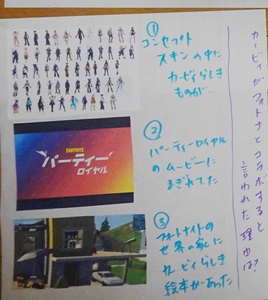 カービィがフォトナとコラボすると
言われた理由は?
①
コンセプト
スキンの中に
カービィらしき
ものが…
FORTNITE
パーティー
ロイヤル
②
パーティーロイヤル
のムービーに
まぎれてた
③
フォートナイトの
世界の家に
カービィらしき
絵本があった